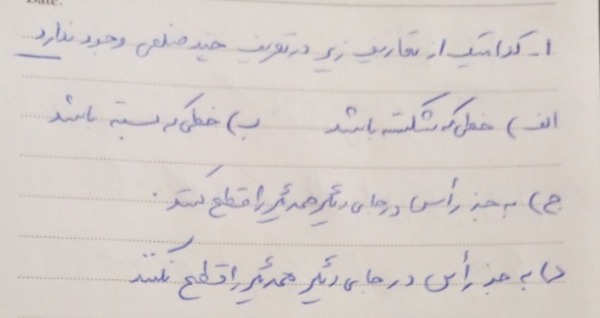 Date:
۱- کدامیک از تعاریف زیر در تعریف چند ضلعی وجود ندارد
الف) خطی که شکسته باشد ب) خطی که بسته باشد
ج) به جز رأس در جای دیگر همدیگر را قطع کنند.
د) به جز رأس در جای دیگر همدیگر را قطع نکنند